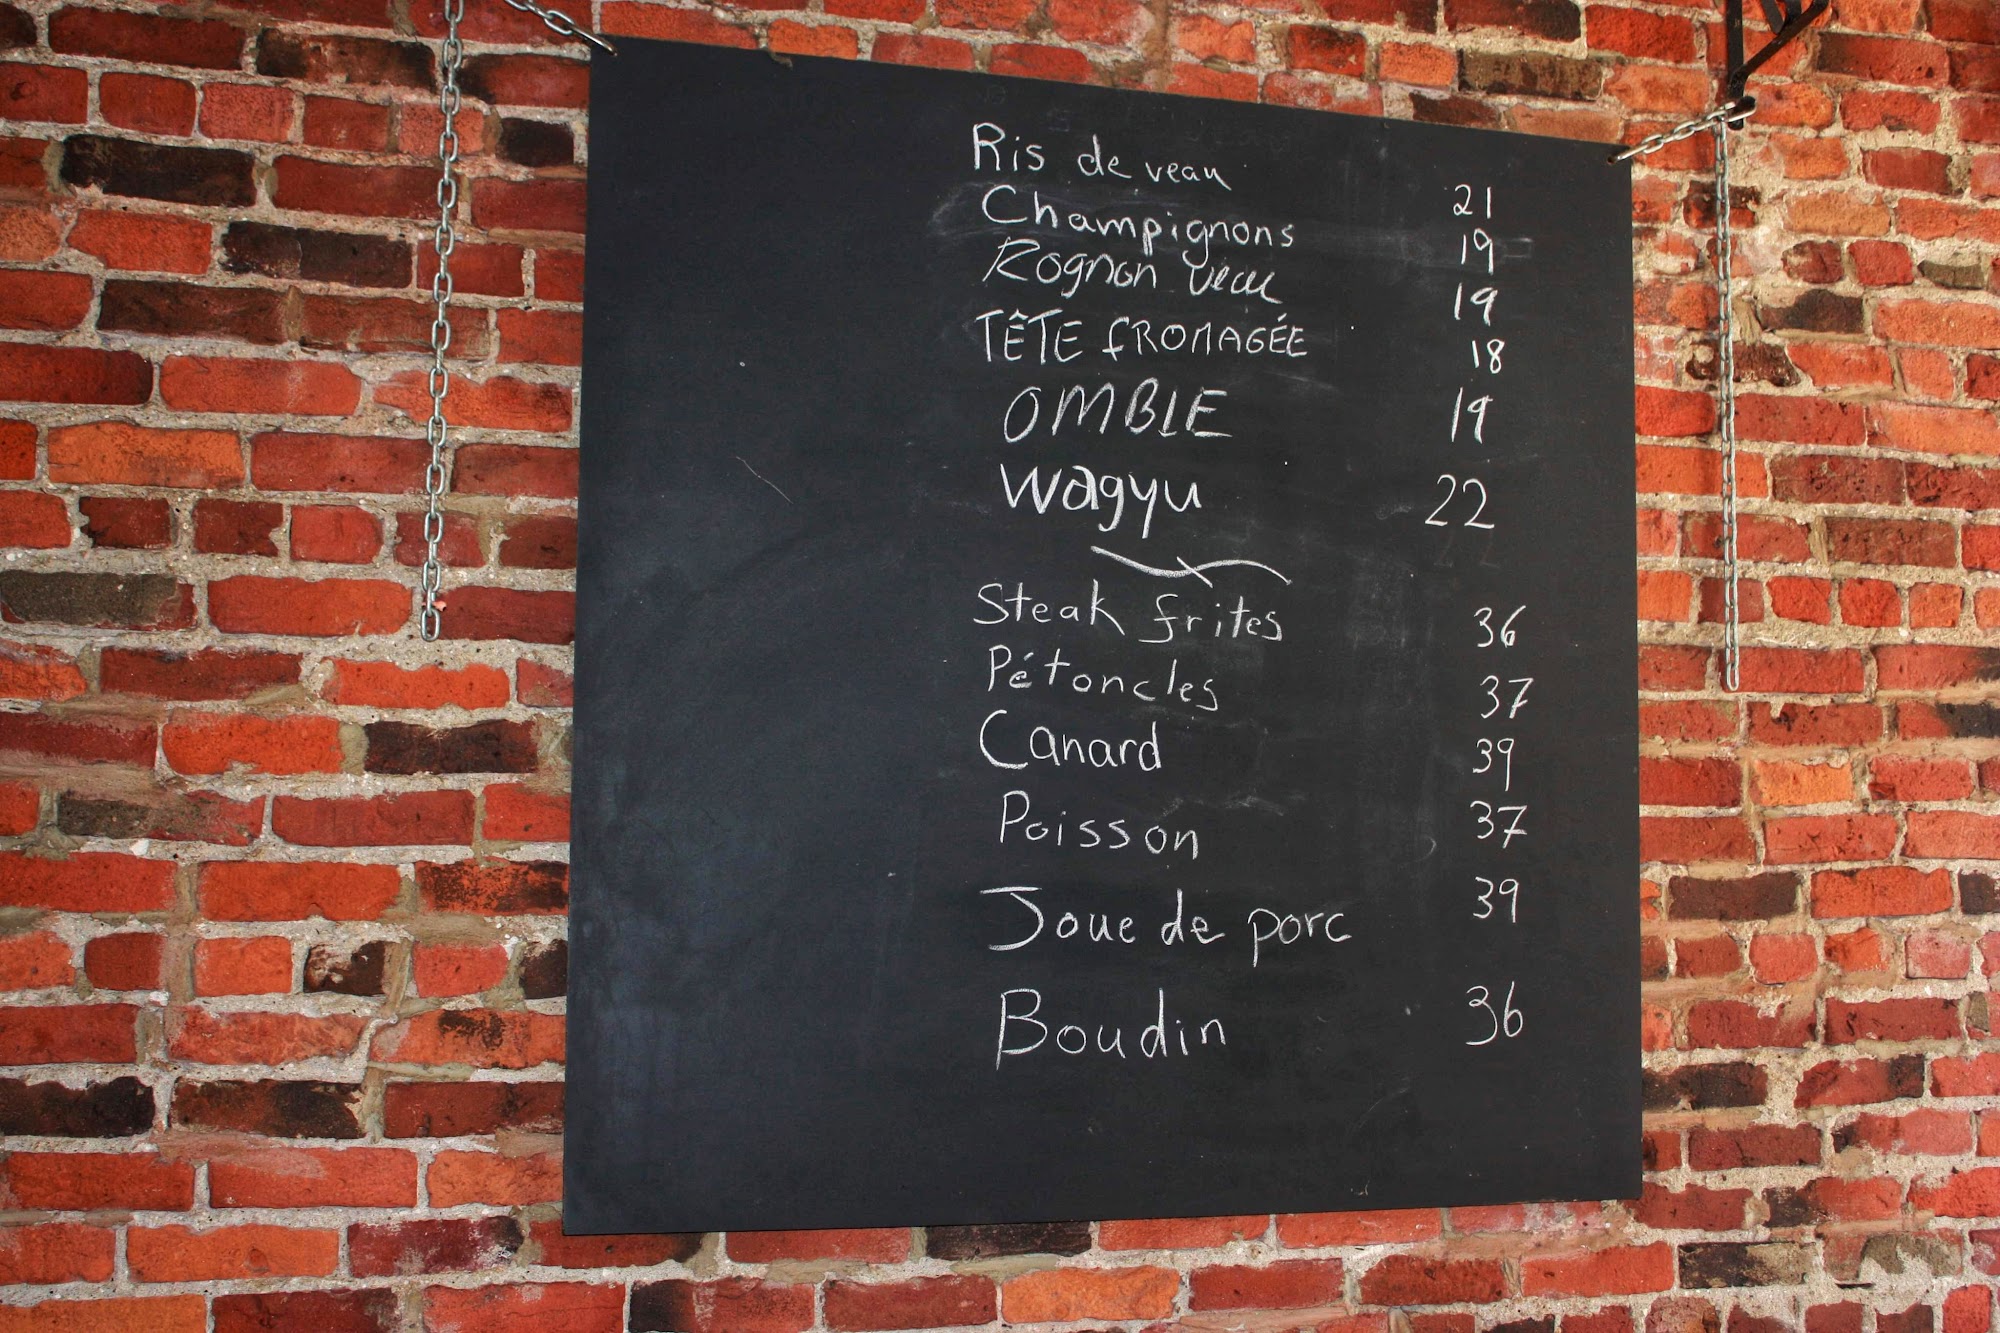 Ris de veau 21
Champignons 19
Rognon veau 19
TÊTE fROMAGÉE 18
OMBLE 19
Wagyu 22
Steak frites 36
Pétoncles 37
Canard 39
Poisson 37
Joue de porc 39
Boudin 36